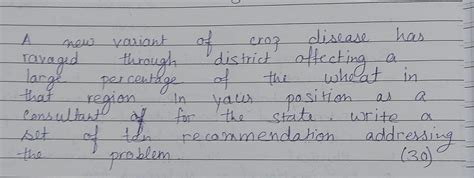 A new variant of crop disease has
ravaged through district affecting a
large percentage of the wheat in
that region In your position as a
consultant of for the state. write a
set of ten recommendation addressing
the problem. (30)